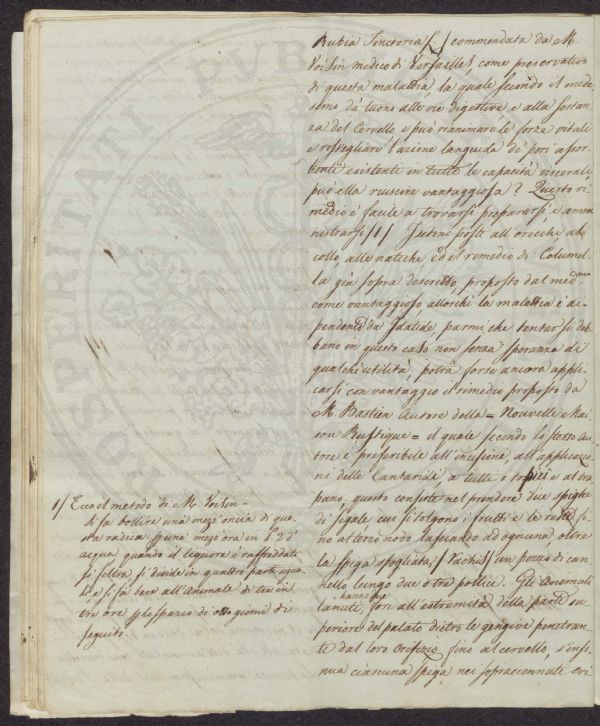 Rubia Tinctoria /./ commendata da M.
Voisin medico di Versailles come preservativo
di questa malattia la quale secondo il mede
simo dà tuono alle vie digestive e alla sostan
za del Cervello e può rianimare le forze vitali
e risvegliare l'azione languida de' pori assor
benti esistenti in tutte le capacità viscerali
può ella riuscire vantaggiosa? Questo ri
medio è facile a trovarsi prepararsi, e ammi
nistrarsi /1/ Setoni posti all'orecchi al
collo, alle natiche ed il remedio di Columel
la già sopra descritto, proposto dal medmo
come vantaggioso allorchè la malattia è di
pendente da Idatide, parmi che tentar si deb
bano in questo caso non senza speranza di
qualche utilità; potrà forse ancora appli
carsi con vantaggio il rimedio proposto da
M. Bastien Autore della = Nouvelle Mai
son Rustique = il quale secondo lo stesso Au
tore è preferibile all'incisione, all'applicazio
ni delle Cantaridi, a tutti i topici e al tra
pano, questo consiste nel prendere due spighe
di segale cui si tolgono i frutti e le reste si
no al terzo nodo lasciando ad ognuna oltre
la spiga spogliata /Rachis/ un pezzo di can
nello lungo due o tre pollici. Gli Animali
lanuti, hanno due fori all'estremità della parte su
periore del palato dietro le gengive penetran
te dal loro Orifizio fino al cervello, s'insi
nua ciascuna spiga nei sopraccennati ori
1/ Ecco il metodo di M. Voisin -
Si fa bollire una mezz'oncia di que
sta radica p una mezz'ora in L. 2 d'
acqua quando il liquore è raffreddato
si feltra si divide in quattro parti ugua
li e si fa bere all'Animale di tre in
tre ore p lo spazio di giorni di
seguito